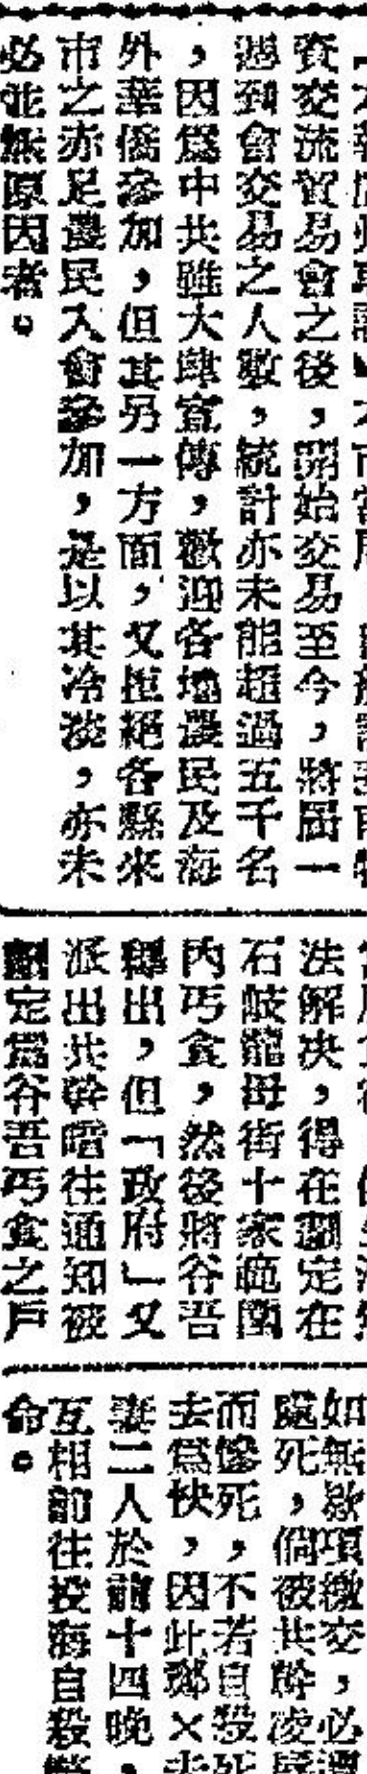 資交流貿易會之後，開始交易至今，將屆一
週到會交易之人數，統計亦未能超過五千名
，因爲中共雖大肆宣傳，歡迎各地農民及海
外華僑參加，但其另一方面，又拒絕各縣來
市之亦足農民入會參加，是以其冷淡，亦未
必並無原因者。
法解决，得在劃定在
石岐龍母街十家範圍
內丐食，然後將谷吾
釋出，但「政府」又
派出共幹暗往通知被
劃定爲谷吾丐食之戶
如無欵項繳交，必遭
處死，倘被共幹凌辱
而慘死，不若自殺死
去爲快，因此鄧×夫
妻二人於前十四晚，
互相前往投海自殺
命。